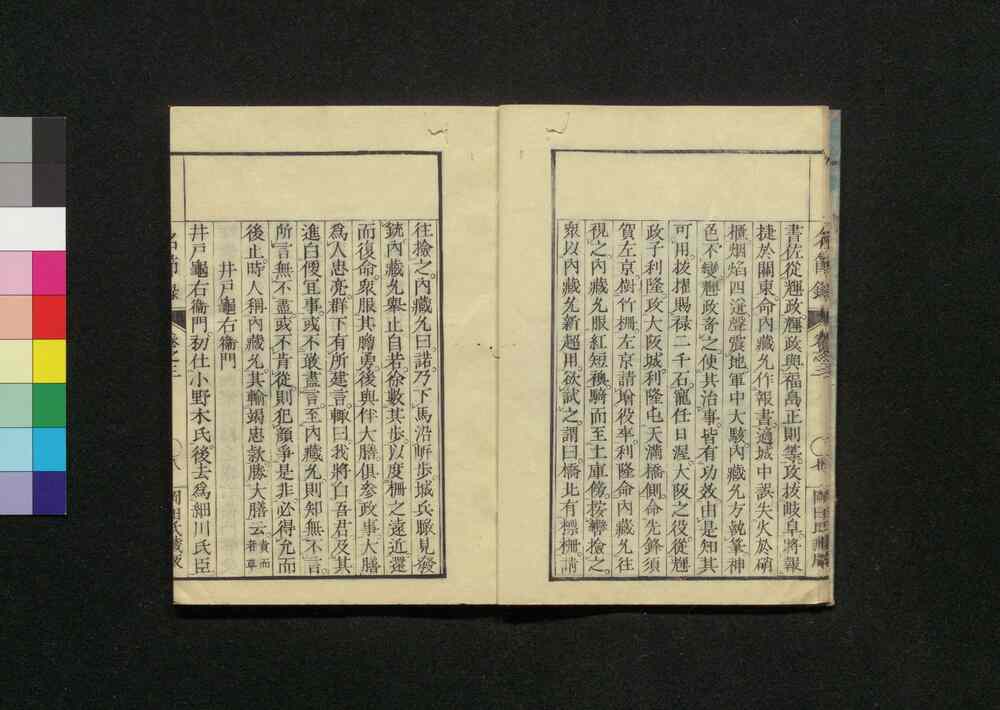 書佐從輝政輝政與福島正則等攻拔岐阜將報
捷於關東命內藏允作報書適城中誤失火於硝
櫃烟焰四逬聲震地軍中大駭內藏允方執筆神
色不變輝政奇之使其治事皆有功效由是知其
可用拔擢賜祿二千石寵任日渥大阪之役從輝
政子利隆攻大阪城利隆屯天滿橋側命先鋒須
賀左京樹竹柵左京請瑜役率利隆命內藏允往
視之內藏允服紅短襖騎而至土車傍按轡撿之
衆以內藏允新超用欲試之謂曰橋北有標柵請
往撿之內藏允曰諾乃下馬沿畔步城兵脈見發
銃內藏允舉止自若徐數其步以度柵之遠近還
而復命衆服其膽勇後與伴大膳俱參政事大膳
爲人忠亮群下有所建言輙曰我將白吾君及其
進白傻冝事或不敢盡言至內藏允則知無不言
所言無不盡或不肯從則犯顏爭是非必得允而
後止時人稱內藏允其輸竭忠款勝大膳云 責而者尊
井戸龜右衞門
井戸龜右衞門初仕小野木氏後去爲細川氏臣
名節錄 卷之三 〇八 岡田氏藏版